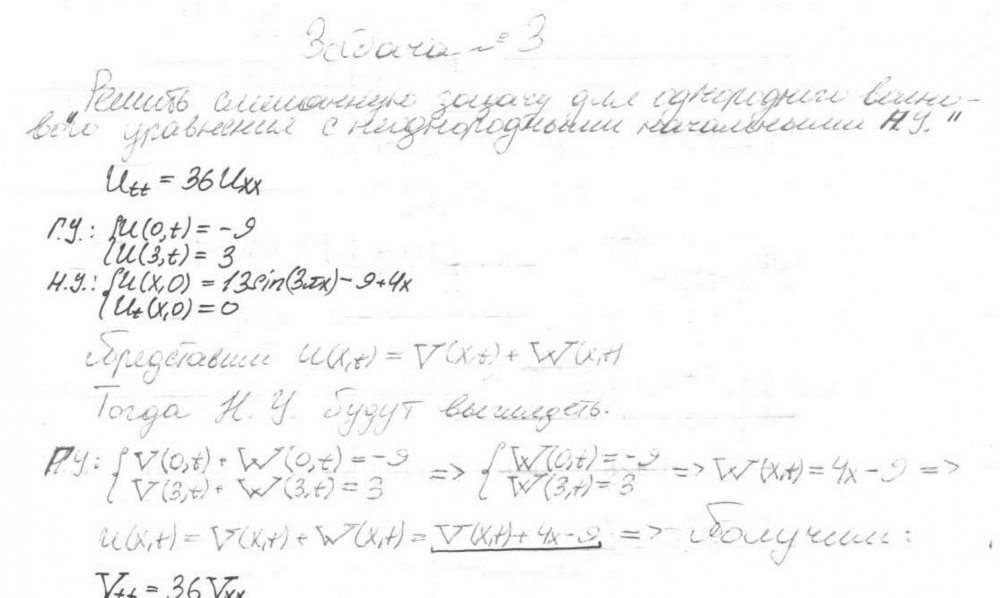 Задача № 3
Решить смешанную задачу для однородного волно-
вого уравнения с неоднородными начальными Н.У."
Utt = 36 Uxx
Г.У.: { U(0,t) = -9
U(3,t) = 3
Н.У.: { U(x,0) = 13sin(3πx) - 9 + 4x
Ut(x,0) = 0
Представим U(x,t) = V(x,t) + W(x,t)
Тогда Н.У. будут выглядеть.
Г.У.: { V(0,t) + W(0,t) = -9 => { W(0,t) = -9 => W(x,t) = 4x - 9 =>
V(3,t) + W(3,t) = 3 W(3,t) = 3
U(x,t) = V(x,t) + W(x,t) = V(x,t) + 4x - 9 => Получим:
Vtt = 36 Vxx